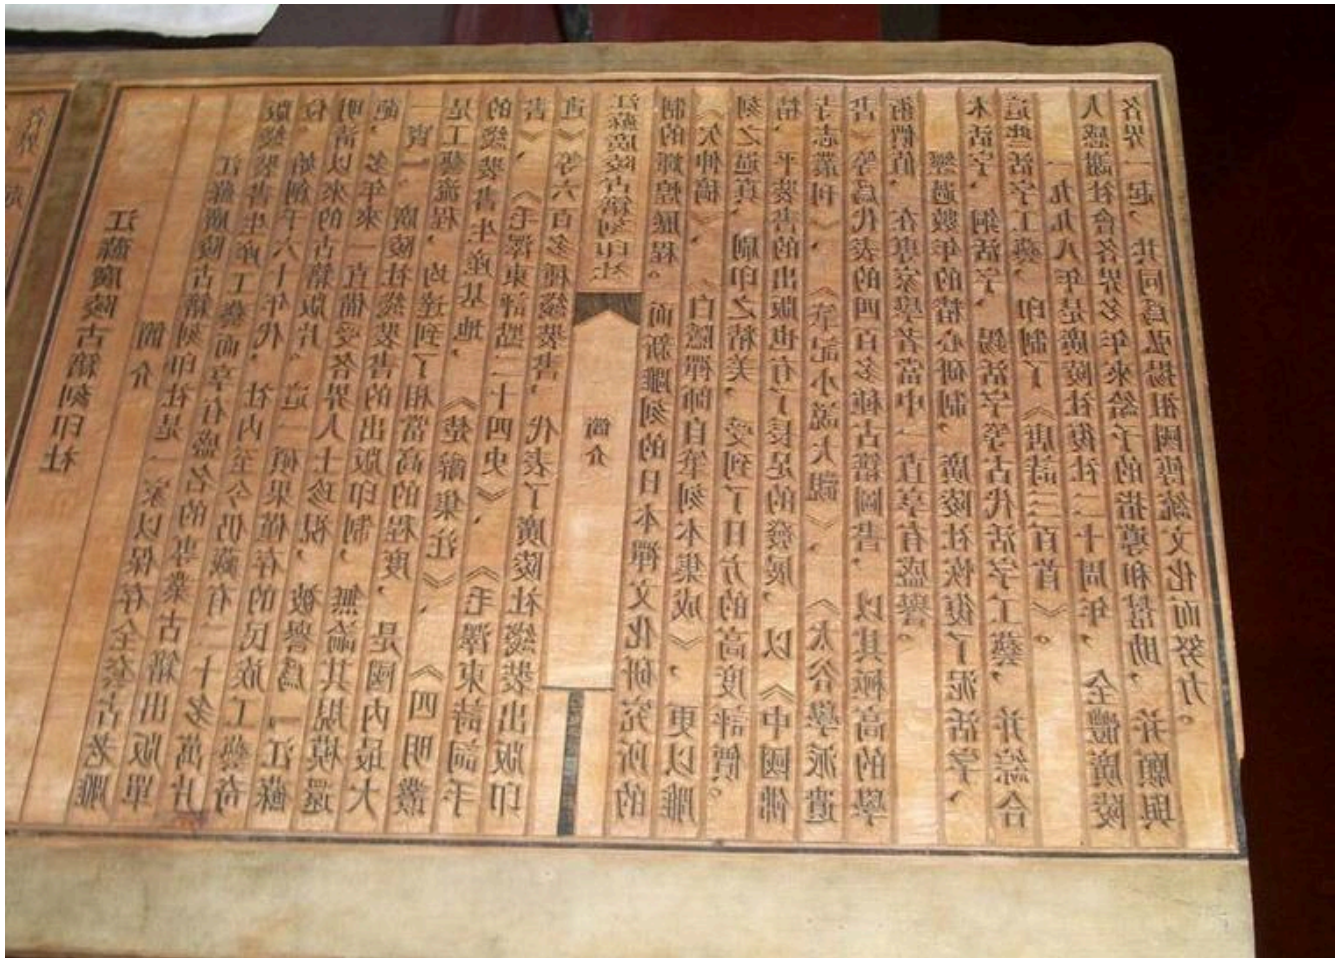 江蘇廣陵古籍刻印社
簡介
江蘇廣陵古籍刻印社是一家以保存全套古老雕
版綫裝書生產工藝而享有盛名的專業古籍出版單
位。始創于六十年代,社內至今仍藏有二十多萬片
明清以來的古籍版片。這一碩果僅存的民族工藝奇
葩,多年來一直備受各界人士珍視,被譽爲“江蘇
一寶”。廣陵社綫裝書的出版印制,無論其規模還
是工藝流程,均達到了相當高的程度,是國內最大
的綫裝書生產基地,《楚辭集注》、《四明叢
書》、《毛澤東評點二十四史》、《毛澤東詩詞手
迹》等六百多種綫裝書,代表了廣陵社綫裝出版印
江蘇廣陵古籍刻印社
簡介
制的輝煌歷程。而新雕刻的日本禪文化研究所的
《欠伸稿》、《白隱禪師自筆刻本集成》,更以雕
刻之逼真、刷印之精美,受到了日方的高度評價。
精、平裝書的出版也有了長足的發展,以《中國佛
寺志叢刊》、《筆記小說大觀》、《太谷學派遺
書》等爲代表的四百多種古籍圖書,以其極高的學
術價值,在專家學者當中一直享有盛譽。
經過數年的精心研制,廣陵社恢復了泥活字、
木活字、銅活字、錫活字等古代活字工藝,并綜合
這些活字工藝,印制了《唐詩三百首》。
一九九八年是廣陵社復社二十周年,全體廣陵
人感謝社會各界多年來給予的指導和幫助,并願與
各界一起,共同爲弘揚祖國傳統文化而努力。